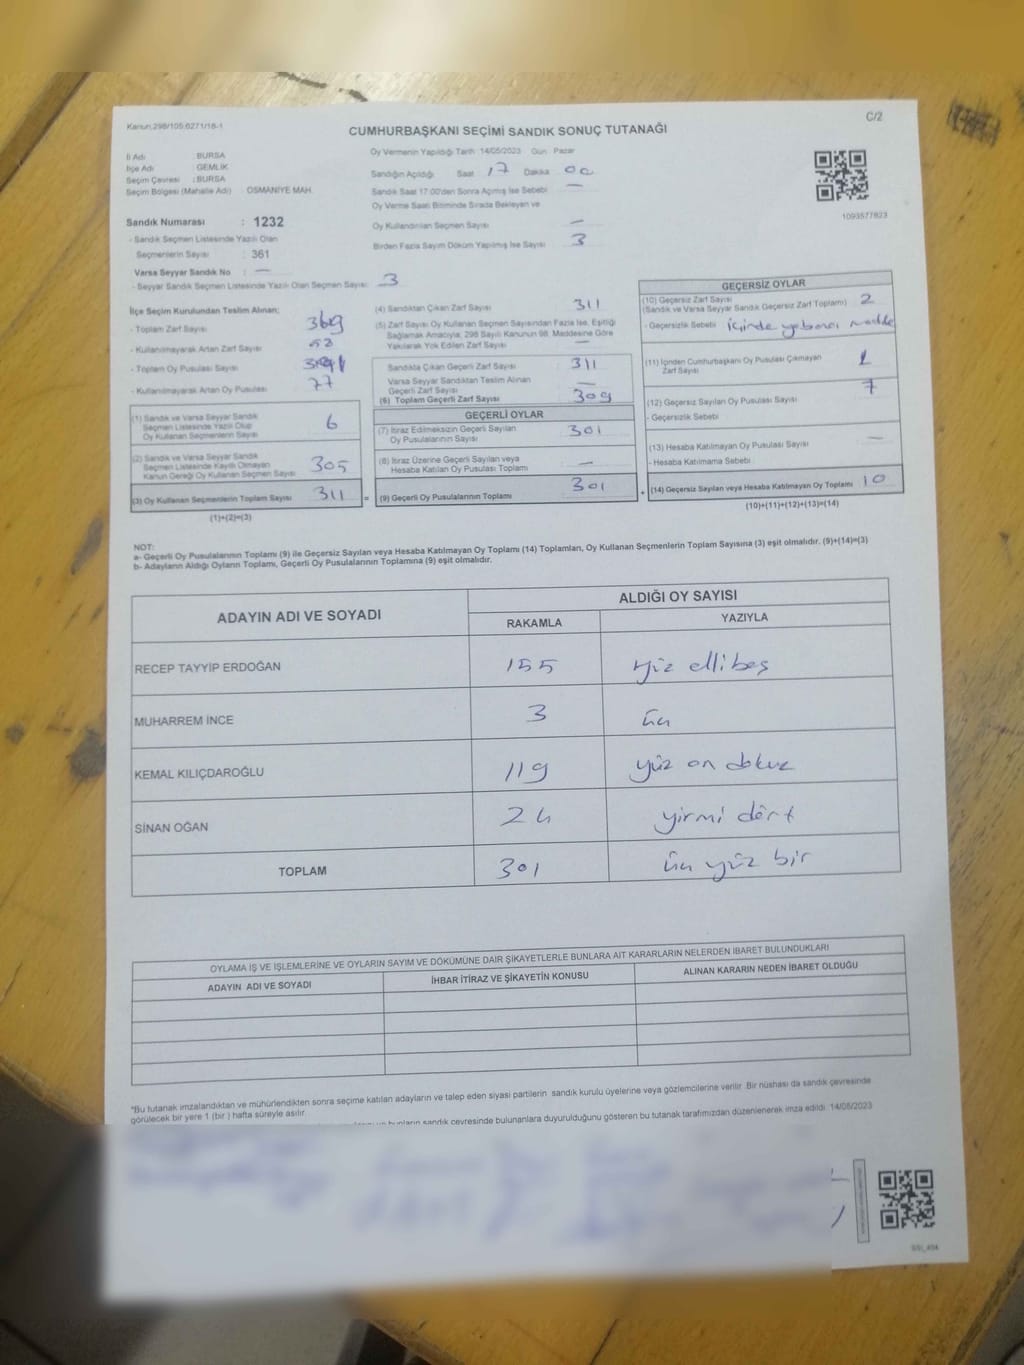 Kanun:298/105,6271/18-1
C/2
CUMHURBAŞKANI SEÇİMİ SANDIK SONUÇ TUTANAĞI
İl Adı : BURSA
İlçe Adı : GEMLİK
Seçim Çevresi : BURSA
Seçim Bölgesi (Mahalle Adı) OSMANİYE MAH.
Sandık Numarası : 1232
- Sandık Seçmen Listesinde Yazılı Olan
Seçmenlerin Sayısı : 361
Varsa Seyyar Sandık No : —
- Seyyar Sandık Seçmen Listesinde Yazılı Olan Seçmen Sayısı 3
Oy Vermenin Yapıldığı Tarih 14/05/2023 Gün Pazar
Sandığın Açıldığı Saat 17 Dakika 00
Sandık Saat 17:00'den Sonra Açılmış İse Sebebi —
Oy Verme Saati Bitiminde Sırada Bekleyen ve
Oy Kullandırılan Seçmen Sayısı —
Birden Fazla Sayım Döküm Yapılmış İse Sayısı 3
1093577823
İlçe Seçim Kurulundan Teslim Alınan;
- Toplam Zarf Sayısı 369
- Kullanılmayarak Artan Zarf Sayısı
- Toplam Oy Pusulası Sayısı
- Kullanılmayarak Artan Oy Pusulası 77
(1) Sandık ve Varsa Seyyar Sandık
Seçmen Listesinde Yazılı Olup
Oy Kullanan Seçmenlerin Sayısı 6
(2) Sandık ve Varsa Seyyar Sandık
Seçmen Listesinde Kayıtlı Olmayan
Kanun Gereği Oy Kullanan Seçmen Sayısı 305
(3) Oy Kullanan Seçmenlerin Toplam Sayısı 311 =
(1)+(2)=(3)
(4) Sandıktan Çıkan Zarf Sayısı 311
(5) Zarf Sayısı Oy Kullanan Seçmen Sayısından Fazla İse, Eşitliği
Sağlamak Amacıyla; 298 Sayılı Kanunun 98. Maddesine Göre
Yakılarak Yok Edilen Zarf Sayısı —
Sandıkta Çıkan Geçerli Zarf Sayısı 311
Varsa Seyyar Sandıktan Teslim Alınan
Geçerli Zarf Sayısı —
(6) Toplam Geçerli Zarf Sayısı 309
GEÇERLİ OYLAR
(7) İtiraz Edilmeksizin Geçerli Sayılan
Oy Pusulalarının Sayısı 301
(8) İtiraz Üzerine Geçerli Sayılan veya
Hesaba Katılan Oy Pusulası Toplamı —
(9) Geçerli Oy Pusulalarının Toplamı 301 +
GEÇERSİZ OYLAR
(10) Geçersiz Zarf Sayısı
(Sandık ve Varsa Seyyar Sandık Geçersiz Zarf Toplamı) 2
- Geçersizlik Sebebi içinde yabancı madde
(11) İçinden Cumhurbaşkanı Oy Pusulası Çıkmayan
Zarf Sayısı 1
(12) Geçersiz Sayılan Oy Pusulası Sayısı 7
- Geçersizlik Sebebi
(13) Hesaba Katılmayan Oy Pusulası Sayısı —
- Hesaba Katılmama Sebebi
(14) Geçersiz Sayılan veya Hesaba Katılmayan Oy Toplamı 10
(10)+(11)+(12)+(13)=(14)
NOT:
a- Geçerli Oy Pusulalarının Toplamı (9) ile Geçersiz Sayılan veya Hesaba Katılmayan Oy Toplamı (14) Toplamları, Oy Kullanan Seçmenlerin Toplam Sayısına (3) eşit olmalıdır. (9)+(14)=(3)
b- Adayların Aldığı Oyların Toplamı, Geçerli Oy Pusulalarının Toplamına (9) eşit olmalıdır.
ADAYIN ADI VE SOYADI
ALDIĞI OY SAYISI
RAKAMLA YAZIYLA
RECEP TAYYİP ERDOĞAN 155 yüz ellibeş
MUHARREM İNCE 3 üç
KEMAL KILIÇDAROĞLU 119 yüz on dokuz
SİNAN OĞAN 24 yirmi dört
TOPLAM 301 üç yüz bir
OYLAMA İŞ VE İŞLEMLERİNE VE OYLARIN SAYIM VE DÖKÜMÜNE DAİR ŞİKAYETLERLE BUNLARA AİT KARARLARIN NELERDEN İBARET BULUNDUKLARI
ADAYIN ADI VE SOYADI İHBAR İTİRAZ VE ŞİKAYETİN KONUSU ALINAN KARARIN NEDEN İBARET OLDUĞU
*Bu tutanak imzalandıktan ve mühürlendikten sonra seçime katılan adayların ve talep eden siyasi partilerin sandık kurulu üyelerine veya gözlemcilerine verilir. Bir nüshası da sandık çevresinde
görülecek bir yere 1 (bir) hafta süreyle asılır.
bunların sandık çevresinde bulunanlara duyurulduğunu gösteren bu tutanak tarafımızdan düzenlenerek imza edildi. 14/05/2023